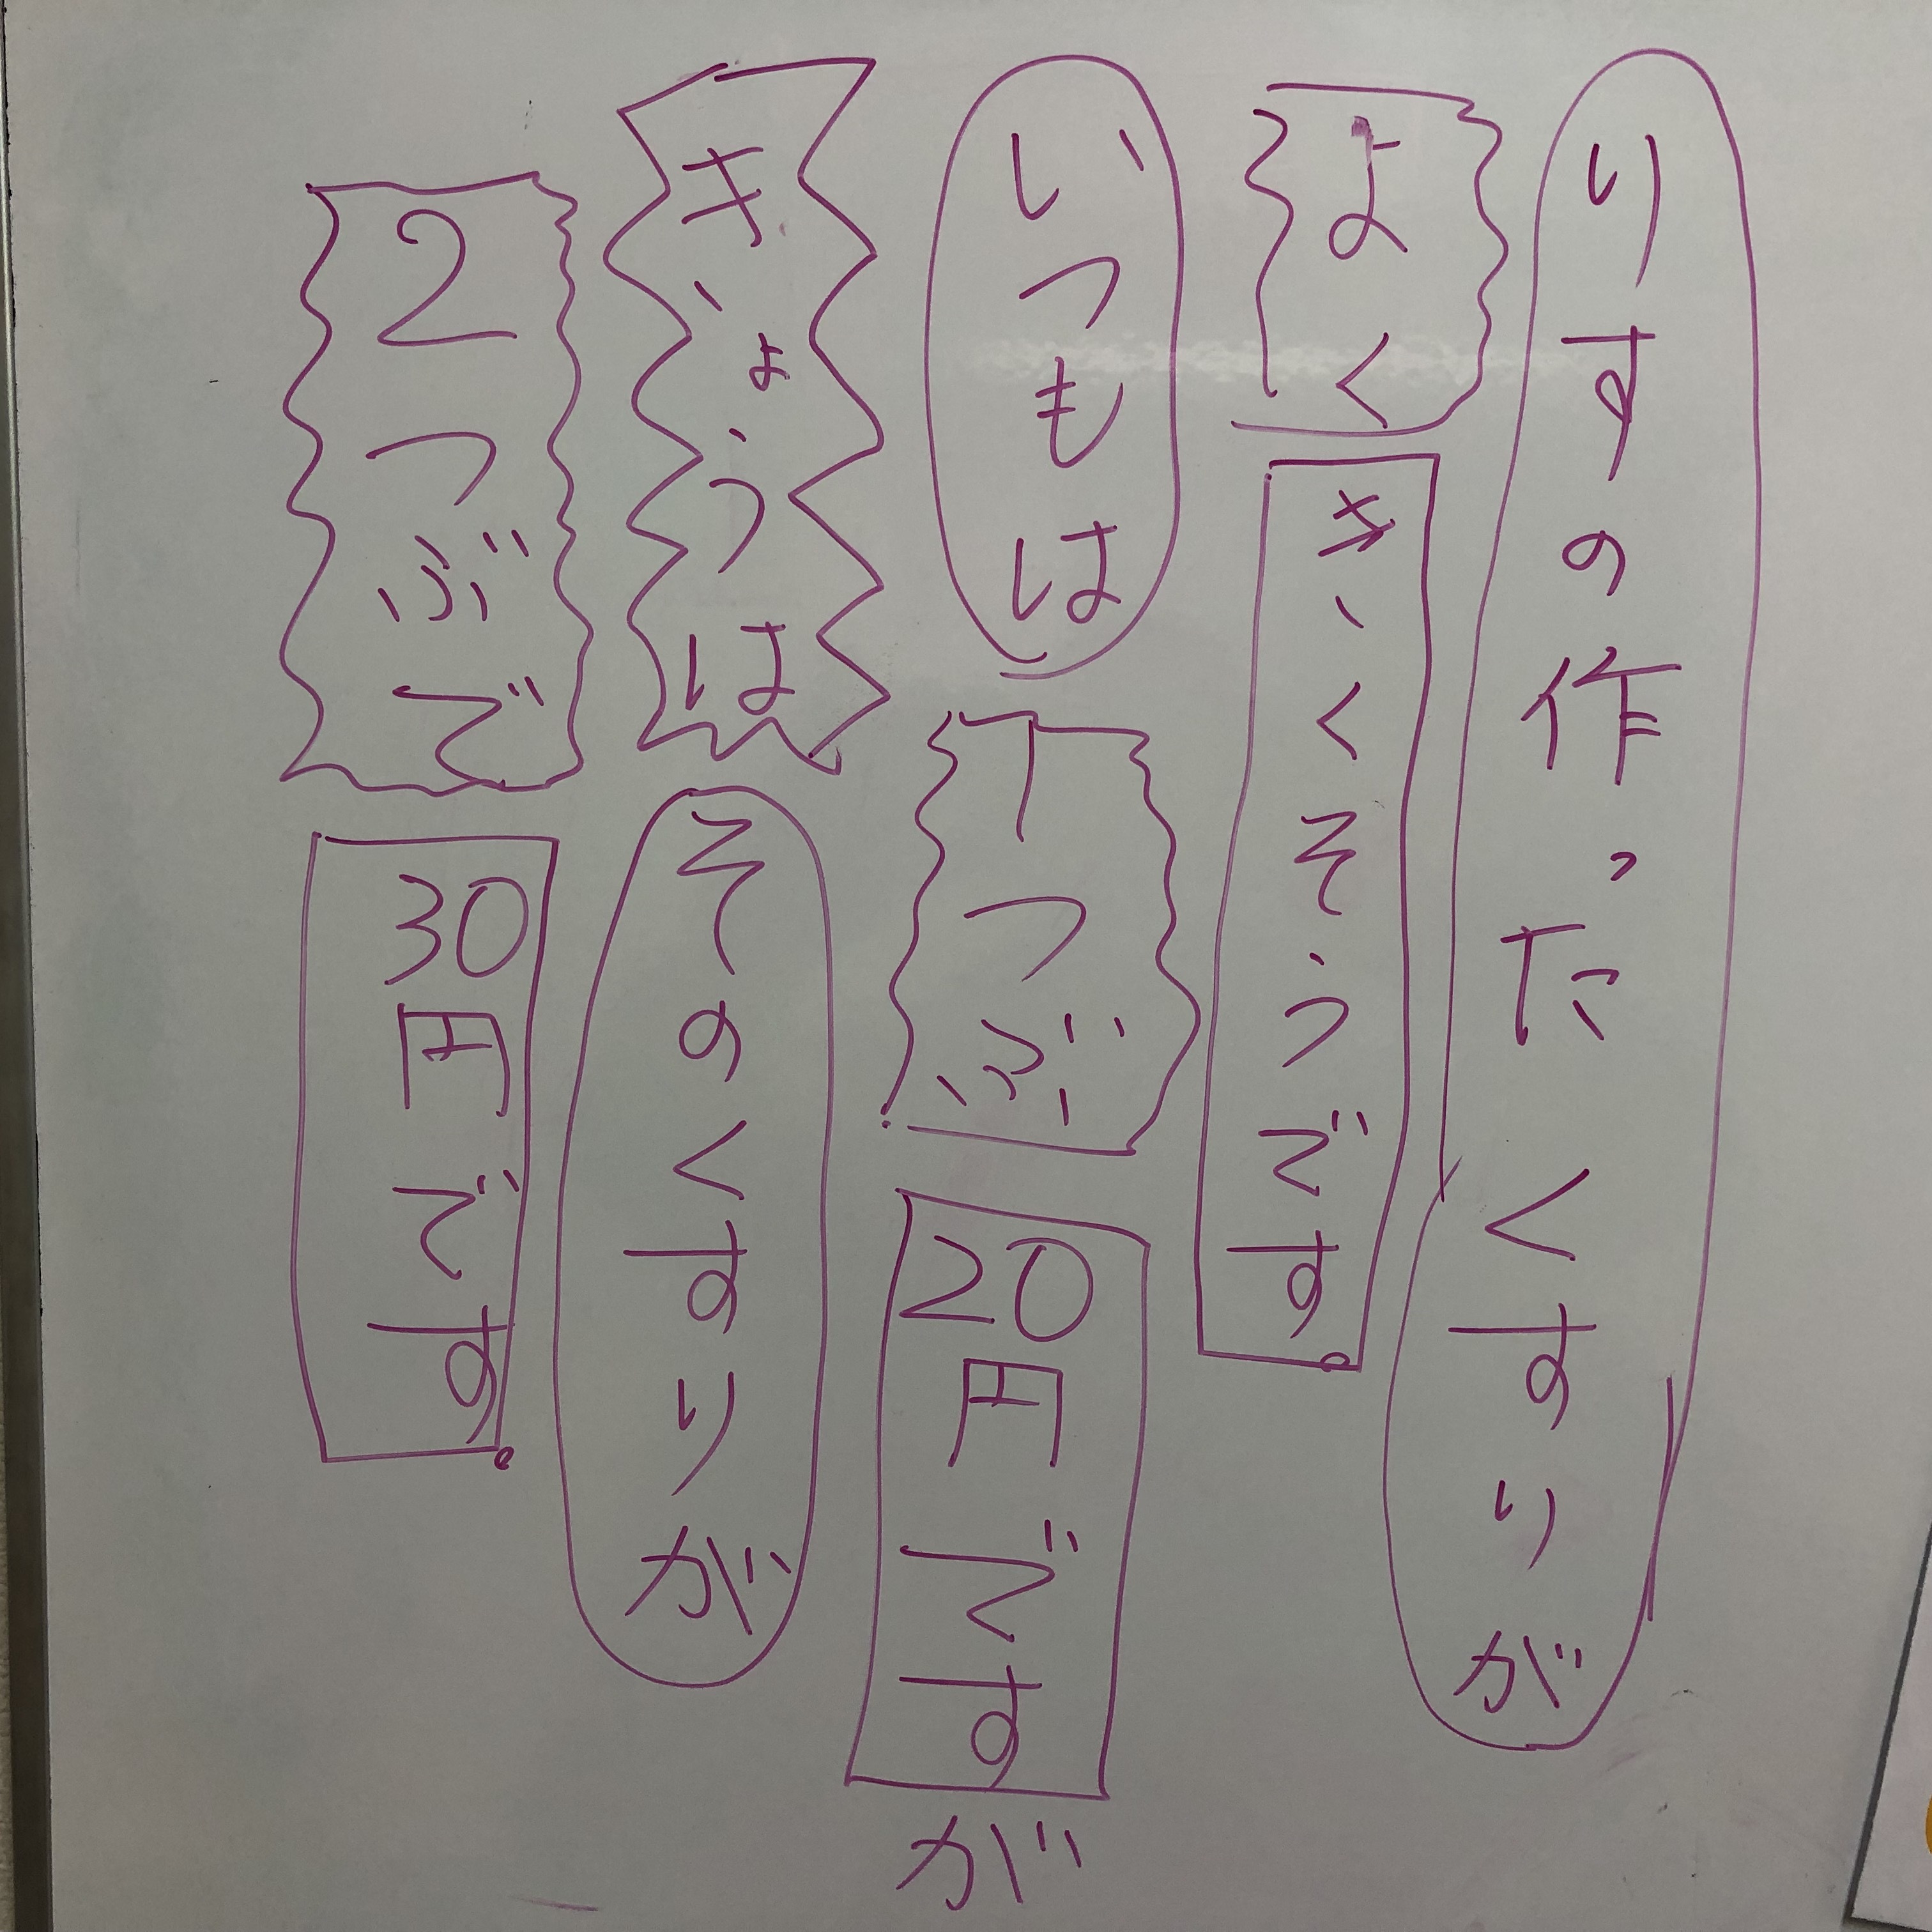 りすの作ったくすりが
よくきくそうです。
いつもは1つぶ20円ですが
きょうはそのくすりが
2つぶで30円です。